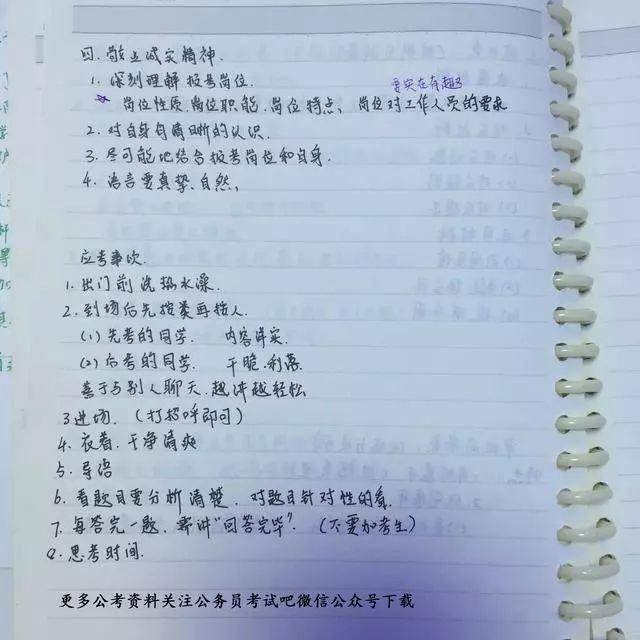 四. 敬业诚实精神.
1. 深刻理解报考岗位.
要实在有趣
岗位性质 岗位职能. 岗位特点, 岗位对工作人员的要求
2. 对自身有清晰的认识.
3. 尽可能地结合报考岗位和自身.
4. 语言要真挚.自然,
应考事次.
1. 出门前洗热水澡.
2. 到场后先按类再按人.
(1) 先考的同学. 内容详实.
(2) 后考的同学. 干脆.利落.
善于与别人聊天.越讲越轻松.
3 进场. (打招呼即可)
4. 衣着.干净清爽
5. 导语
6. 看题目要分析清楚. 对题目针对性的看.
7. 每答完一题. 需讲"回答完毕". (不要加考生)
8. 思考时间.
更多公考资料关注公务员考试吧微信公众号下载